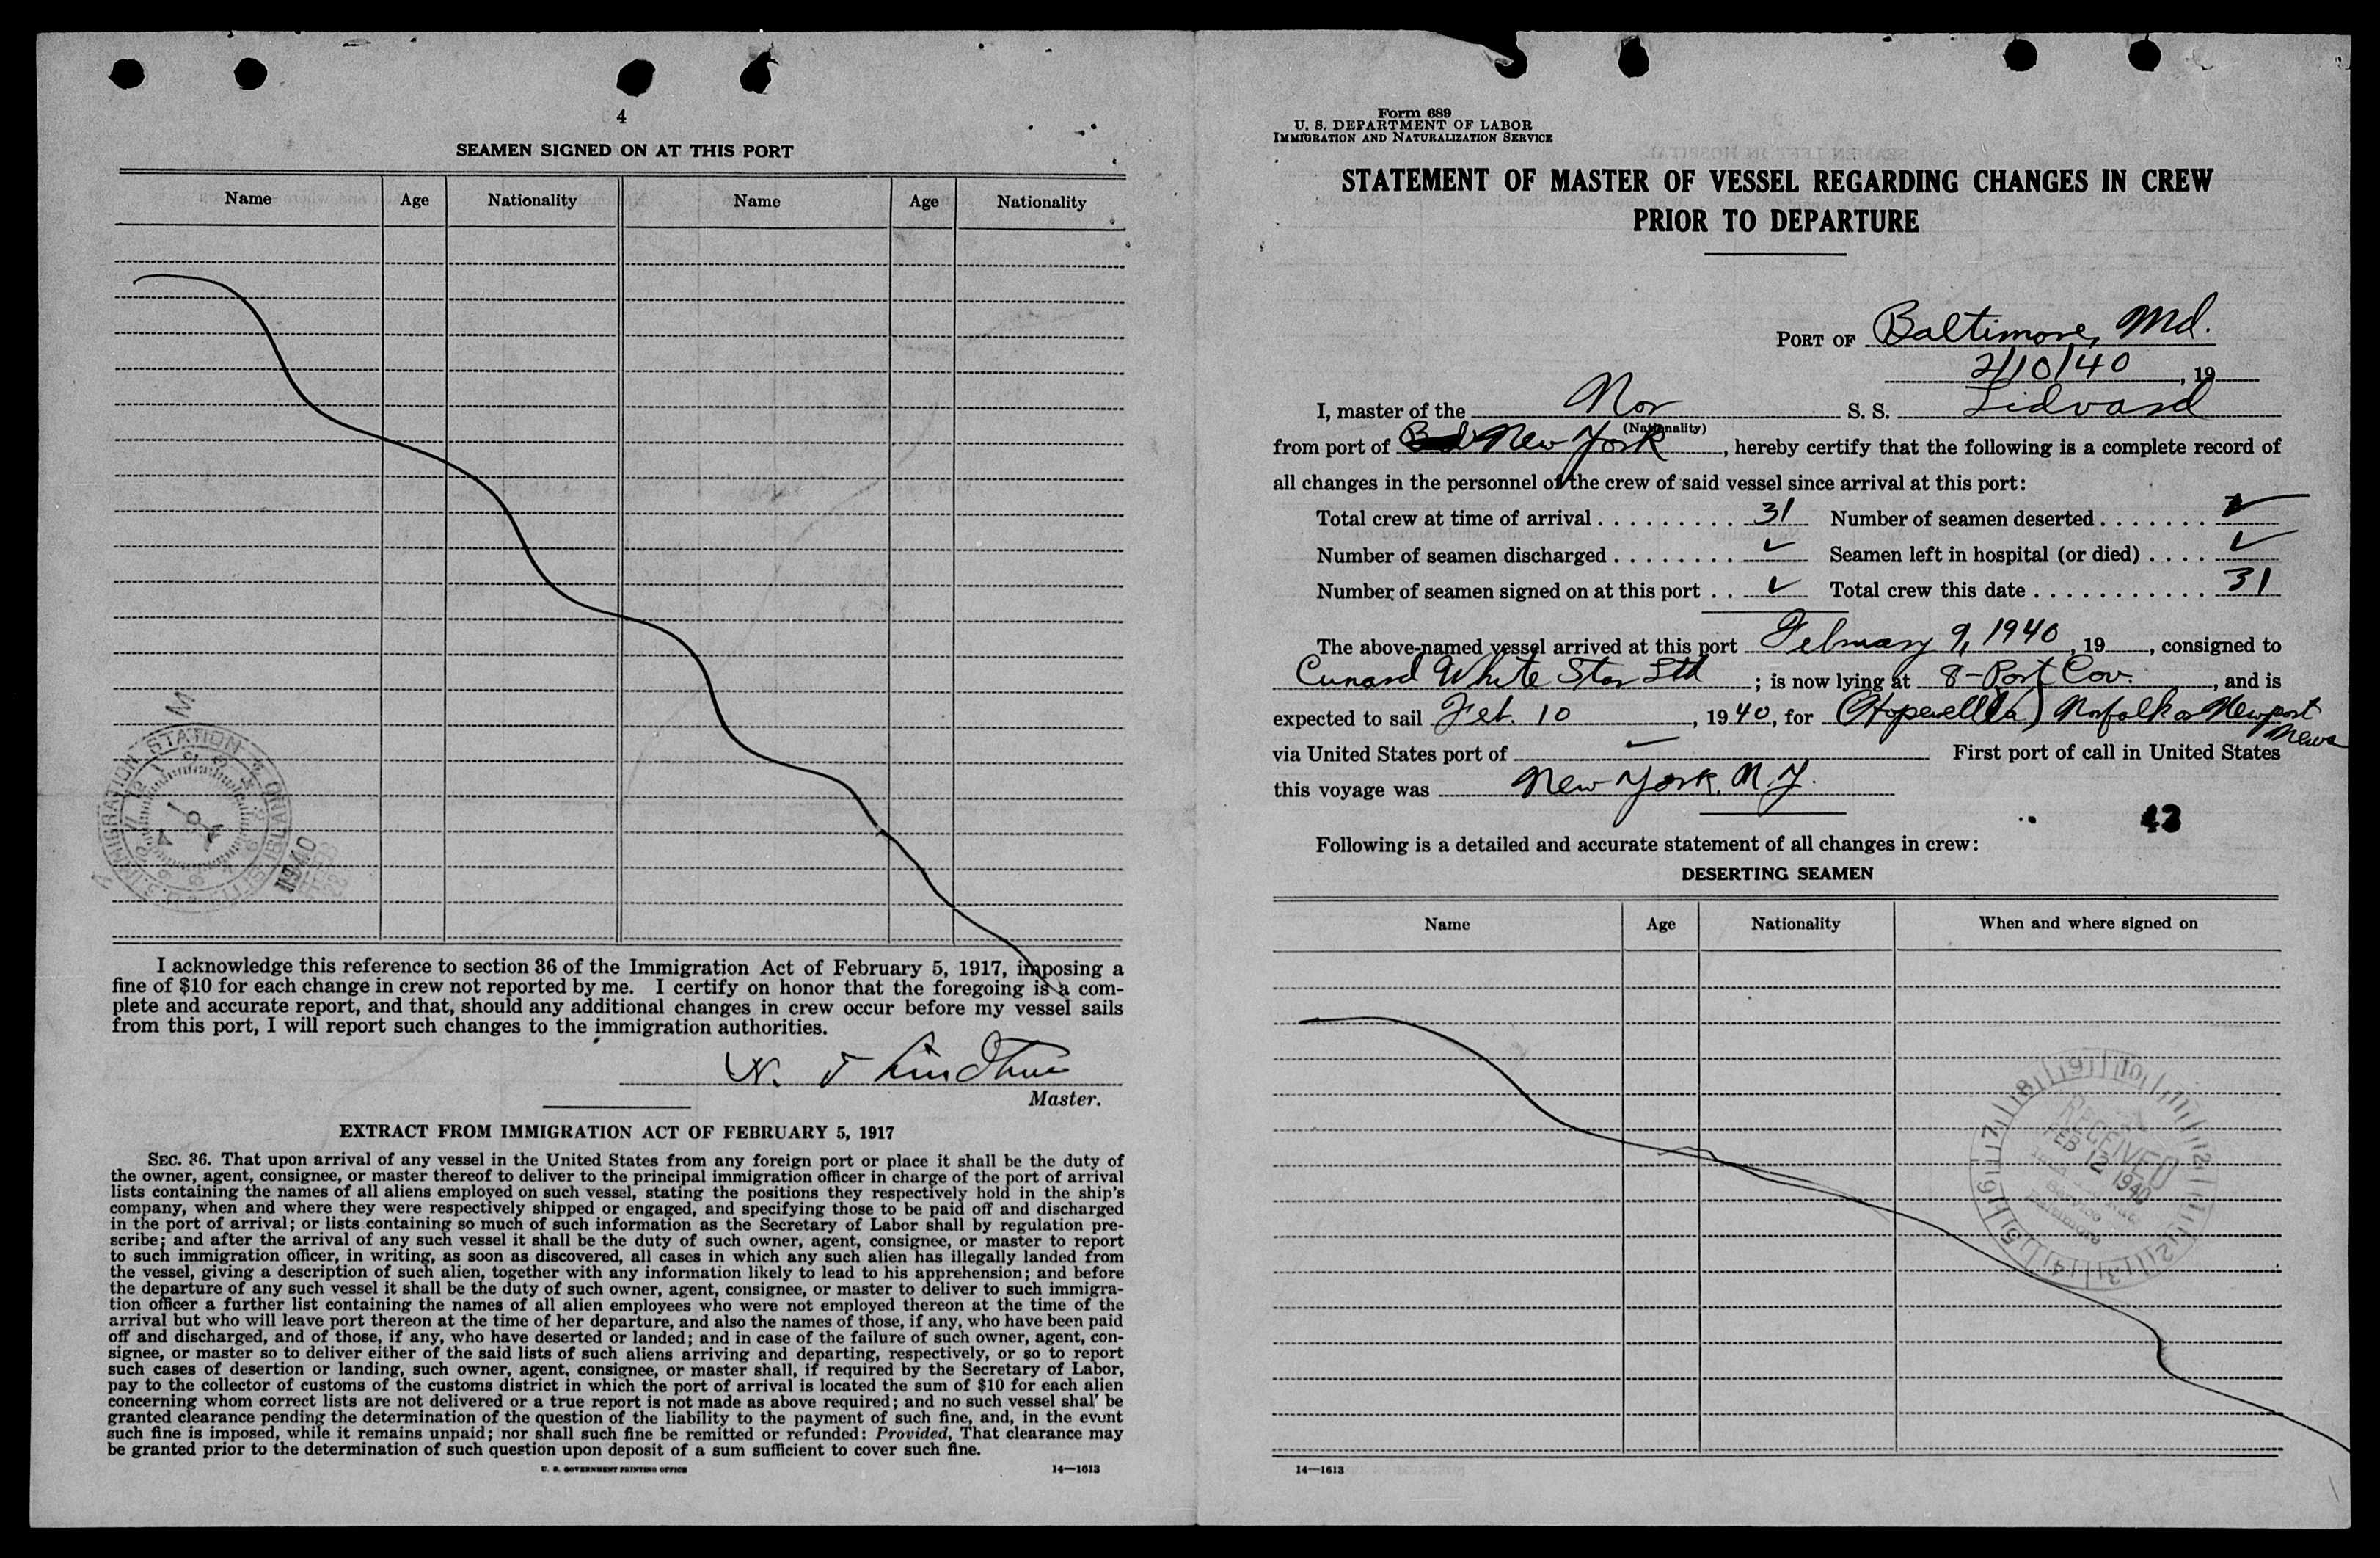 4
SEAMEN SIGNED ON AT THIS PORT
Name Age Nationality Name Age Nationality
IMMIGRATION STATION
1940
I acknowledge this reference to section 36 of the Immigration Act of February 5, 1917, imposing a
fine of $10 for each change in crew not reported by me. I certify on honor that the foregoing is a com-
plete and accurate report, and that, should any additional changes in crew occur before my vessel sails
from this port, I will report such changes to the immigration authorities.
N.
Master.
EXTRACT FROM IMMIGRATION ACT OF FEBRUARY 5, 1917
SEC. 36. That upon arrival of any vessel in the United States from any foreign port or place it shall be the duty of
the owner, agent, consignee, or master thereof to deliver to the principal immigration officer in charge of the port of arrival
lists containing the names of all aliens employed on such vessel, stating the positions they respectively hold in the ship's
company, when and where they were respectively shipped or engaged, and specifying those to be paid off and discharged
in the port of arrival; or lists containing so much of such information as the Secretary of Labor shall by regulation pre-
scribe; and after the arrival of any such vessel it shall be the duty of such owner, agent, consignee, or master to report
to such immigration officer, in writing, as soon as discovered, all cases in which any such alien has illegally landed from
the vessel, giving a description of such alien, together with any information likely to lead to his apprehension; and before
the departure of any such vessel it shall be the duty of such owner, agent, consignee, or master to deliver to such immigra-
tion officer a further list containing the names of all alien employees who were not employed thereon at the time of the
arrival but who will leave port thereon at the time of her departure, and also the names of those, if any, who have been paid
off and discharged, and of those, if any, who have deserted or landed; and in case of the failure of such owner, agent, con-
signee, or master so to deliver either of the said lists of such aliens arriving and departing, respectively, or so to report
such cases of desertion or landing, such owner, agent, consignee, or master shall, if required by the Secretary of Labor,
pay to the collector of customs of the customs district in which the port of arrival is located the sum of $10 for each alien
concerning whom correct lists are not delivered or a true report is not made as above required; and no such vessel shall be
granted clearance pending the determination of the question of the liability to the payment of such fine, and, in the event
such fine is imposed, while it remains unpaid; nor shall such fine be remitted or refunded: Provided, That clearance may
be granted prior to the determination of such question upon deposit of a sum sufficient to cover such fine.
U. S. GOVERNMENT PRINTING OFFICE 14—1613
Form 689
U. S. DEPARTMENT OF LABOR
IMMIGRATION AND NATURALIZATION SERVICE
STATEMENT OF MASTER OF VESSEL REGARDING CHANGES IN CREW
PRIOR TO DEPARTURE
PORT OF Baltimore, Md.
2/10/40, 19
I, master of the Nor S. S. Lidvard
(Nationality)
from port of New York, hereby certify that the following is a complete record of
all changes in the personnel of the crew of said vessel since arrival at this port:
Total crew at time of arrival . . . . . . . . . 31 Number of seamen deserted . . . . . . . ✓
Number of seamen discharged . . . . . . . . ✓ Seamen left in hospital (or died) . . . . ✓
Number of seamen signed on at this port . . ✓ Total crew this date . . . . . . . . . . . 31
The above-named vessel arrived at this port February 9, 1940, 19, consigned to
Cunard White Star Ltd; is now lying at 8-Port Cov., and is
expected to sail Feb. 10, 1940, for (Hopewell Va) Norfolk or Newport
News
via United States port of ✓ First port of call in United States
this voyage was New York, N. Y.
Following is a detailed and accurate statement of all changes in crew:
DESERTING SEAMEN
Name Age Nationality When and where signed on
RECEIVED
FEB 12 1940
Service
Baltimore
14—1613